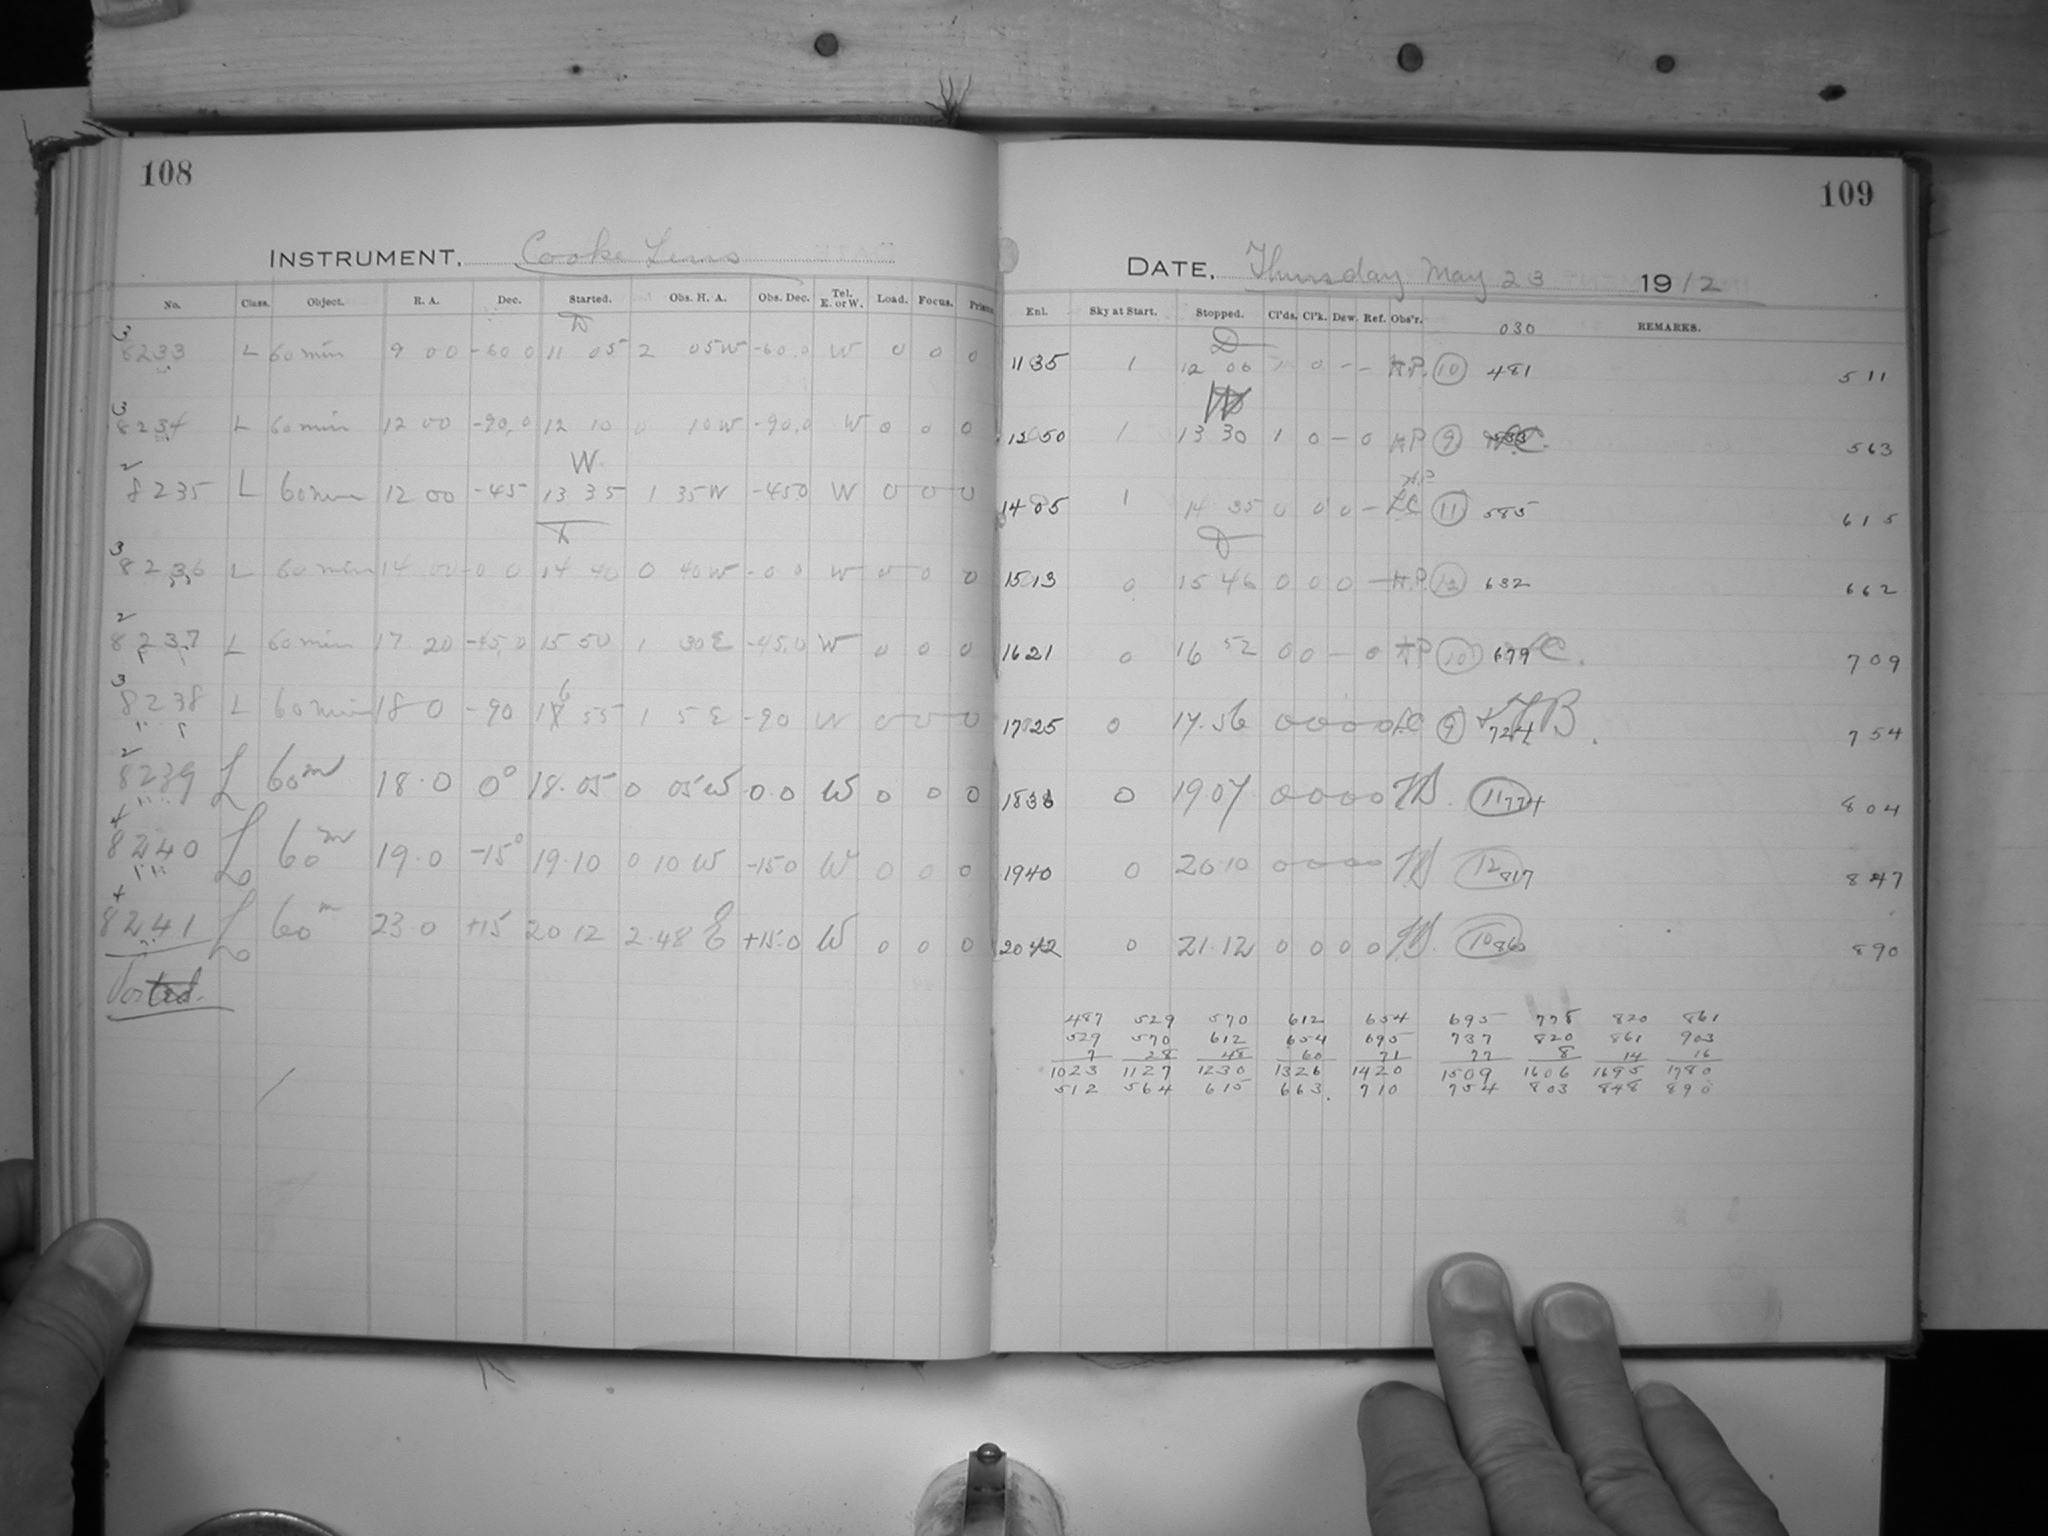 108
INSTRUMENT. Cooke Lens
No. Class. Object. R. A. Dec. Started. Obs. H. A. Obs. Dec. Tel. E. or W. Load. Focus. Prisms.
3
8233 L 60 min 9 00 -60 0 11 05 2 05W -60.0 W 0 0 0
3
8234 L 60 min 12 00 -90.0 12 10 0 10W -90.0 W 0 0 0
W
2
8235 L 60 min 12 00 -45 13 35 1 35W -450 W 0 0 0
3
8236 L 60 min 14 00 -0 0 14 40 0 40W -0 0 W 0 0 0
2
8237 L 60 min 17 20 -45.0 15 50 1 30E -45.0 W 0 0 0
3
8238 L 60 min 18 0 -90 16 55 1 5E -90 W 0 0 0
2
8239 L 60m 18.0 0° 18.05 0 05W 0.0 W 0 0 0
4
8240 L 60m 19.0 -15° 19.10 0 10W -150 W 0 0 0
4
8241 L 60m 23.0 +15 20 12 2.48E +15.0 W 0 0 0
109
DATE. Thursday May 23 1912
Enl. Sky at Start. Stopped. Cl'ds. Cl'k. Dew. Ref. Obs'r. 030 REMARKS.
1135 1 12 06 1 0 - - A.P. 10 481 511
1250 1 13 30 1 0 - 0 AP 9 563
AP
1405 1 14 35 0 0 0 - LC 11 585 615
1513 0 15 46 0 0 0 - A.P. 12 632 662
1621 0 16 52 0 0 - 0 AP 10 679 709
1725 0 17.56 0 0 0 0 LC 9 724 754
1838 0 19 07 0 0 0 0 11 774 804
1940 0 20 10 0 0 0 0 12 817 847
2042 0 21.12 0 0 0 0 10 860 890
487 529 570 612 654 695 775 820 861
529 570 612 654 695 737 820 861 903
7 28 48 60 71 77 8 14 16
1023 1127 1230 1326 1420 1509 1606 1695 1780
512 564 615 663 710 754 803 848 890